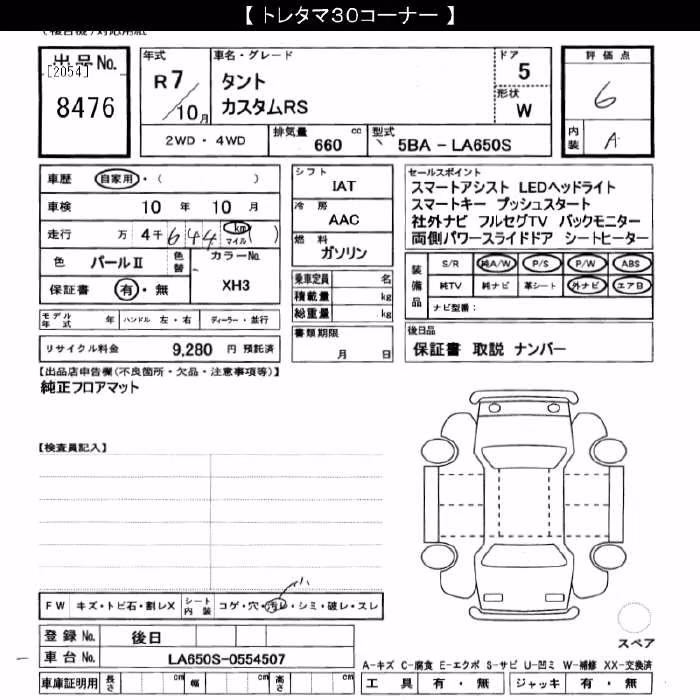 【 トレタマ30コーナー 】
(複合機)対応用紙
出品No.
[2054]
8476
年式 R7 / 10月
車名・グレード
タント
カスタムRS
ドア 5
形状 W
評価点 6
内装 A
2WD・4WD 排気量 660 cc 型式 5BA - LA650S
車歴 自家用・( )
車検 10 年 10 月
走行 万 4千 644 km マイル )
色 パールⅡ 色替 カラーNo. XH3
保証書 有・無
モデル年式 年 ハンドル 左・右 ディーラー・並行
リサイクル料金 9,280 円 預託済
シフト IAT
冷房 AAC
燃料 ガソリン
乗車定員 名
積載量 kg
総重量 kg
書類期限 月 日
セールスポイント
スマートアシスト LEDヘッドライト
スマートキー プッシュスタート
社外ナビ フルセグTV バックモニター
両側パワースライドドア シートヒーター
装備品 S/R 純A/W P/S P/W ABS
純TV 純ナビ 革シート 外ナビ エアB
ナビ型番:
後日品
保証書 取説 ナンバー
【出品店申告欄(不良箇所・欠品・注意事項等)】
純正フロアマット
【検査員記入】
FW キズ・トビ石・割レX シート内装 コゲ・穴・汚レ・シミ・破レ・スレ
小
登録No. 後日
車台No. LA650S-0554507
車庫証明用 長さ cm 幅 cm 高さ cm
スペア
A-キズ C-腐食 E-エクボ S-サビ U-凹ミ W-補修 XX-交換済
工具 有・無 ジャッキ 有・無